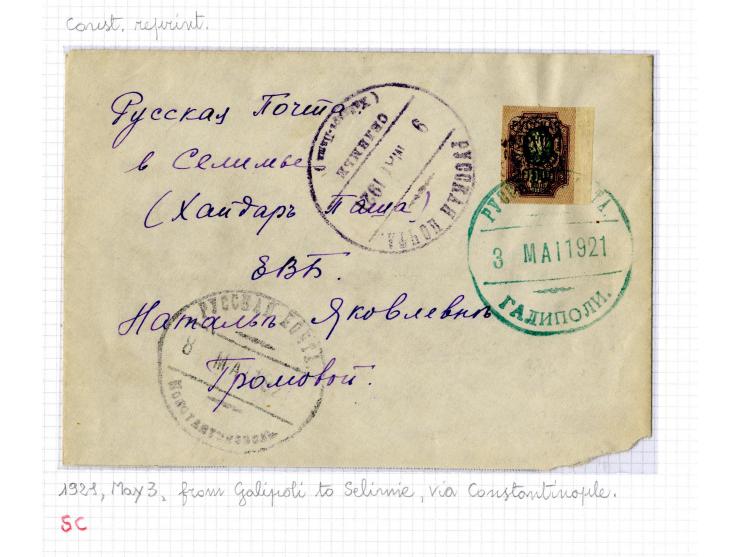 Const. reprint.
Русская Почта
в Селимье
(Хайдаръ Паша)
ЕВБ.
Натальѣ Яковлевнѣ
Громовой.
РУССКАЯ ПОЧТА
9 МАІ 192
СЕЛИМЬЕ
3 МАІ 1921
ГАЛИПОЛИ.
РУССКАЯ ПОЧТА
8 МАІ
1921, May 3, from Galipoli to Selimie, via Constantinople.
SC